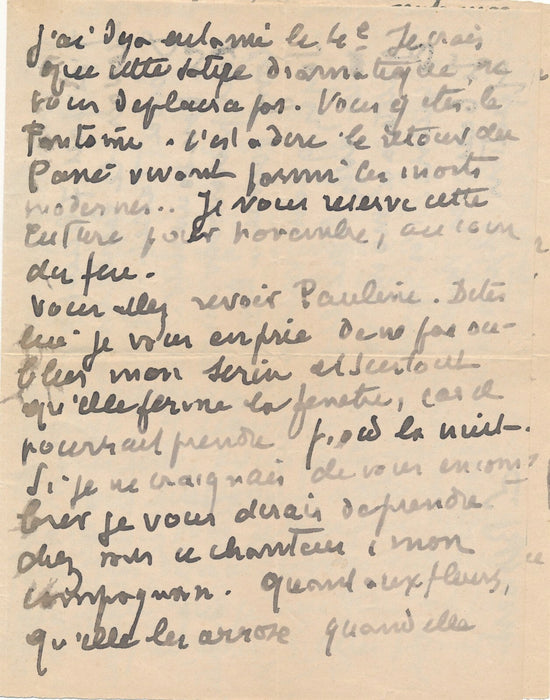 j'ai deja entamé le 4e Je crois
que cette satire dramatique ne
vous deplaira pas. Vous y etes le
Fantome. C'est a dire le retour du
Passé vivant parmi les morts
modernes.. Je vous reserve cette
lecture pour novembre, au coin
du feu.
vous allez revoir Pauline. Dites
lui je vous en prie de ne pas ou-
blier mon serin et surtout
qu'elle ferme la fenetre, car il
pourrait prendre froid la nuit.
Si je ne craignais de vous encom-
brer je vous dirais de prendre
chez vous ce chanteur, mon
compagnon. Quant aux fleurs,
qu'elle les arrose quand elle